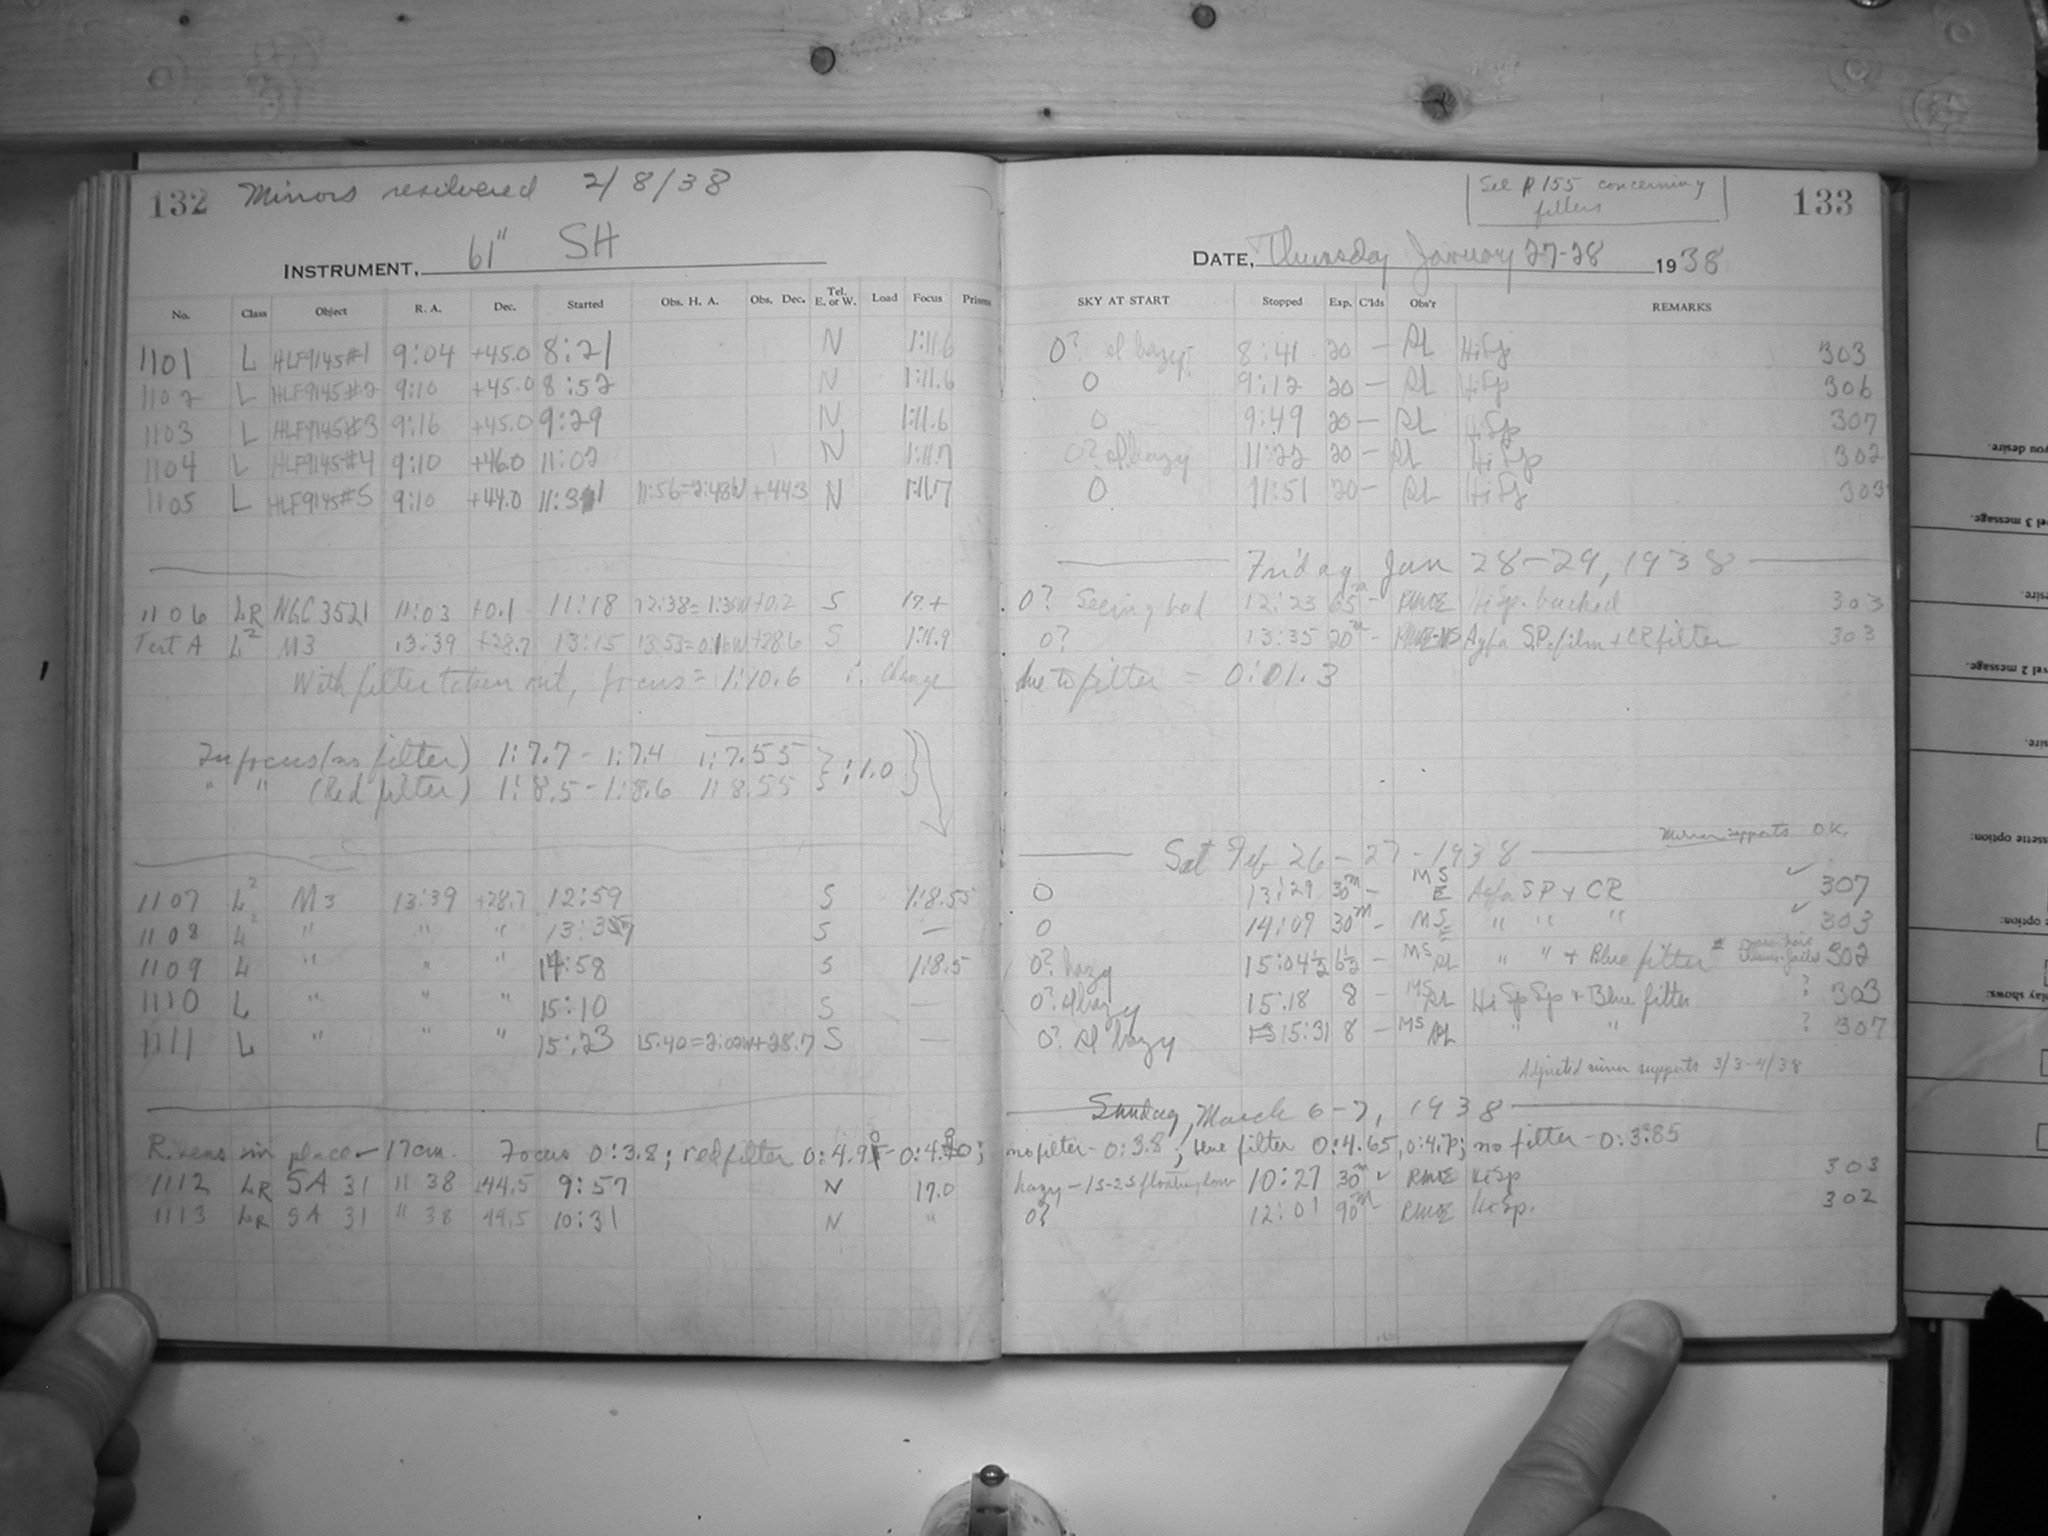 132 Mirrors resilvered 2/8/38
INSTRUMENT, 61" SH
No. Class Object R. A. Dec. Started Obs. H. A. Obs. Dec. Tel. E. or W. Load Focus Prisms
1101 L HLF9145#1 9:04 +45.0 8:21 N 1:11.6
1102 L HLF9145#2 9:10 +45.0 8:52 N 1:11.6
1103 L HLF9145#3 9:16 +45.0 9:29 N 1:11.6
1104 L HLF9145#4 9:10 +46.0 11:02 N 1:11.7
1105 L HLF9145#5 9:10 +44.0 11:31 11:56=2:48W +44.3 N 1:11.7
1106 LR NGC 3521 11:03 +0.1 11:18 S 17.+
Test A L² M3 13:39 +28.7 13:15 +28.6 S 1:11.9
With filter taken out, focus = 1:10.6 ∴ change
In focus (no filter) 1:7.7 - 1:7.4 1:7.55 } :1.0
" " (Red filter) 1:8.5 - 1:8.6 1:8.55
1107 L² M3 13:39 +28.7 12:59 S 1:8.55
1108 L² " " " S —
1109 L " " " 14:58 S 1:8.5
1110 L " " " 15:10 S —
1111 L " " " 15:23 15:40=2:02W +28.7 S —
R. lens in place — 17cm. Focus 0:3.8; red filter
1112 LR SA 31 11 38 +44.5 9:57 N 17.0
1113 LR SA 31 11 38 44.5 10:31 N "
See p. 155 concerning
filters
133
DATE, Thursday January 27-28 1938
SKY AT START Stopped Exp. C'lds Obs'r REMARKS
0? sl hazy 8:41 20 — HiSp 303
0 9:12 20 — HiSp 306
0 9:49 20 — HiSp 307
0? sl. hazy 11:22 20 — HiSp 302
0 11:51 20 — HiSp 303
Friday Jan 28-29, 1938
0? Seeing bad 12:23 65m - HiSp. backed 303
0? 13:35 20m - Agfa S.P. film + CR filter 303
due to filter = 0:01.3
Mirror supports OK.
Sat Feb 26-27-1938
0 13:29 30m - MS E Agfa SP + CR ✓ 307
0 14:09 30m - MS E " " " ✓ 303
0? hazy 15:04½ 6½ - MS " " + Blue filter 302
0? sl hazy 15:18 8 - MS HiSpSp + Blue filter ? 303
0? sl hazy 15:31 8 - MS " " ? 307
Adjusted mirror supports 3/3-4/38
Sunday, March 6-7, 1938
no filter - 0:3.8; blue filter 0:4.65, 0:4.7; no filter - 0:3.85
hazy - 10:27 30m ✓ HiSp 303
0? 12:01 90m HiSp. 302